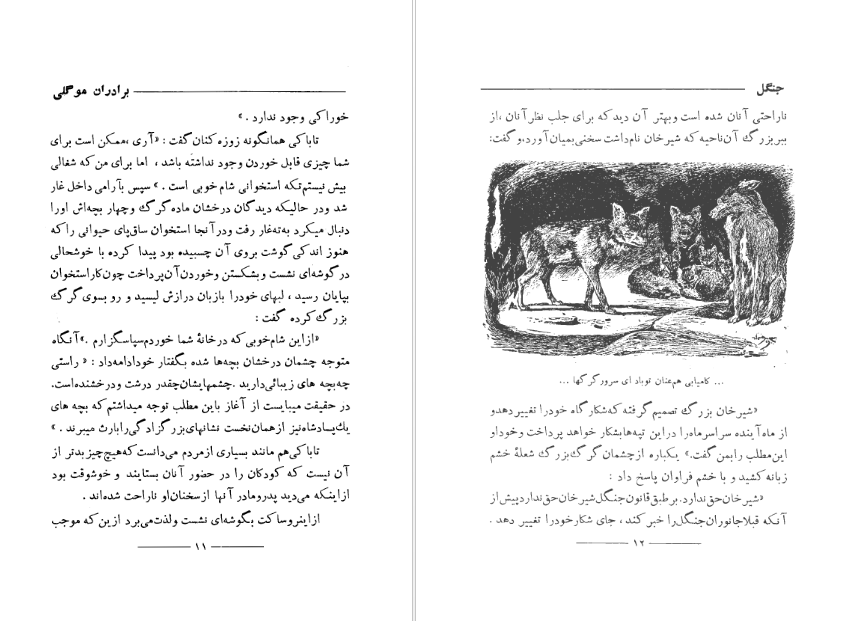 برادران موگلی
خوراکی وجود ندارد . »
تاباکی همانگونه زوزه کنان گفت : «آری ،ممکن است برای
شما چیزی قابل خوردن وجود نداشته باشد ، اما برای من که شغالی
بیش نیستم تکه استخوانی شام خوبی است . » سپس بآرامی داخل غار
شد ودر حالیکه دیدگان درخشان ماده گرگ وچهار بچه‌اش اورا
دنبال میکرد به ته غار رفت ودر آنجا استخوان ساق پای حیوانی را که
هنوز اندکی گوشت بروی آن چسبیده بود پیدا کرده با خوشحالی
در گوشه‌ای نشست و بشکستن و خوردن آن پرداخت چون کار استخوان
بپایان رسید ، لبهای خودرا بازبان درازش لیسید و رو بسوی گرگ
بزرگ کرده گفت :
«ازاین شام خوبی که درخانهٔ شما خوردم سپاسگزارم .» آنگاه
متوجه چشمان درخشان بچه‌ها شده بگفتار خودادامه داد : « راستی
چه بچه های زیبائی دارید .چشمهایشان چقدر درشت ودرخشنده است.
در حقیقت میبایست از آغاز باین مطلب توجه میداشتم که بچه های
یک پادشاه نیز از همان نخست نشانهای بزرگزادگی را بارث میبرند . »
تاباکی هم مانند بسیاری از مردم می‌دانست که هیچ چیز بدتر از
آن نیست که کودکان را در حضور آنان بستایند و خوشوقت بود
ازاینکه می‌دید پدر و مادر آنها از سخنان او ناراحت شده‌اند .
ازاینرو ساکت بگوشه‌ای نشست ولذت می‌برد ازین که موجب
۱۱
جنگل
ناراحتی آنان شده است وبهتر آن دید که برای جلب نظر آنان ،از
ببر بزرگ آن ناحیه که شیرخان نام داشت سخنی بمیان آورد، و گفت:
... کامیابی هم‌عنان توباد ای سرور گرگها ...
«شیرخان بزرگ تصمیم گرفته که شکارگاه خودرا تغییر دهد و
از ماه آینده سراسر ماه را دراین تپه‌ها بشکار خواهد پرداخت وخود او
این مطلب رابمن گفت.» یکباره از چشمان گرگ بزرگ شعلهٔ خشم
زبانه کشید و با خشم فراوان پاسخ داد :
«شیرخان حق ندارد. بر طبق قانون جنگل شیرخان حق ندارد پیش از
آنکه قبلا جانوران جنگل را خبر کند ، جای شکار خودرا تغییر دهد .
۱۲